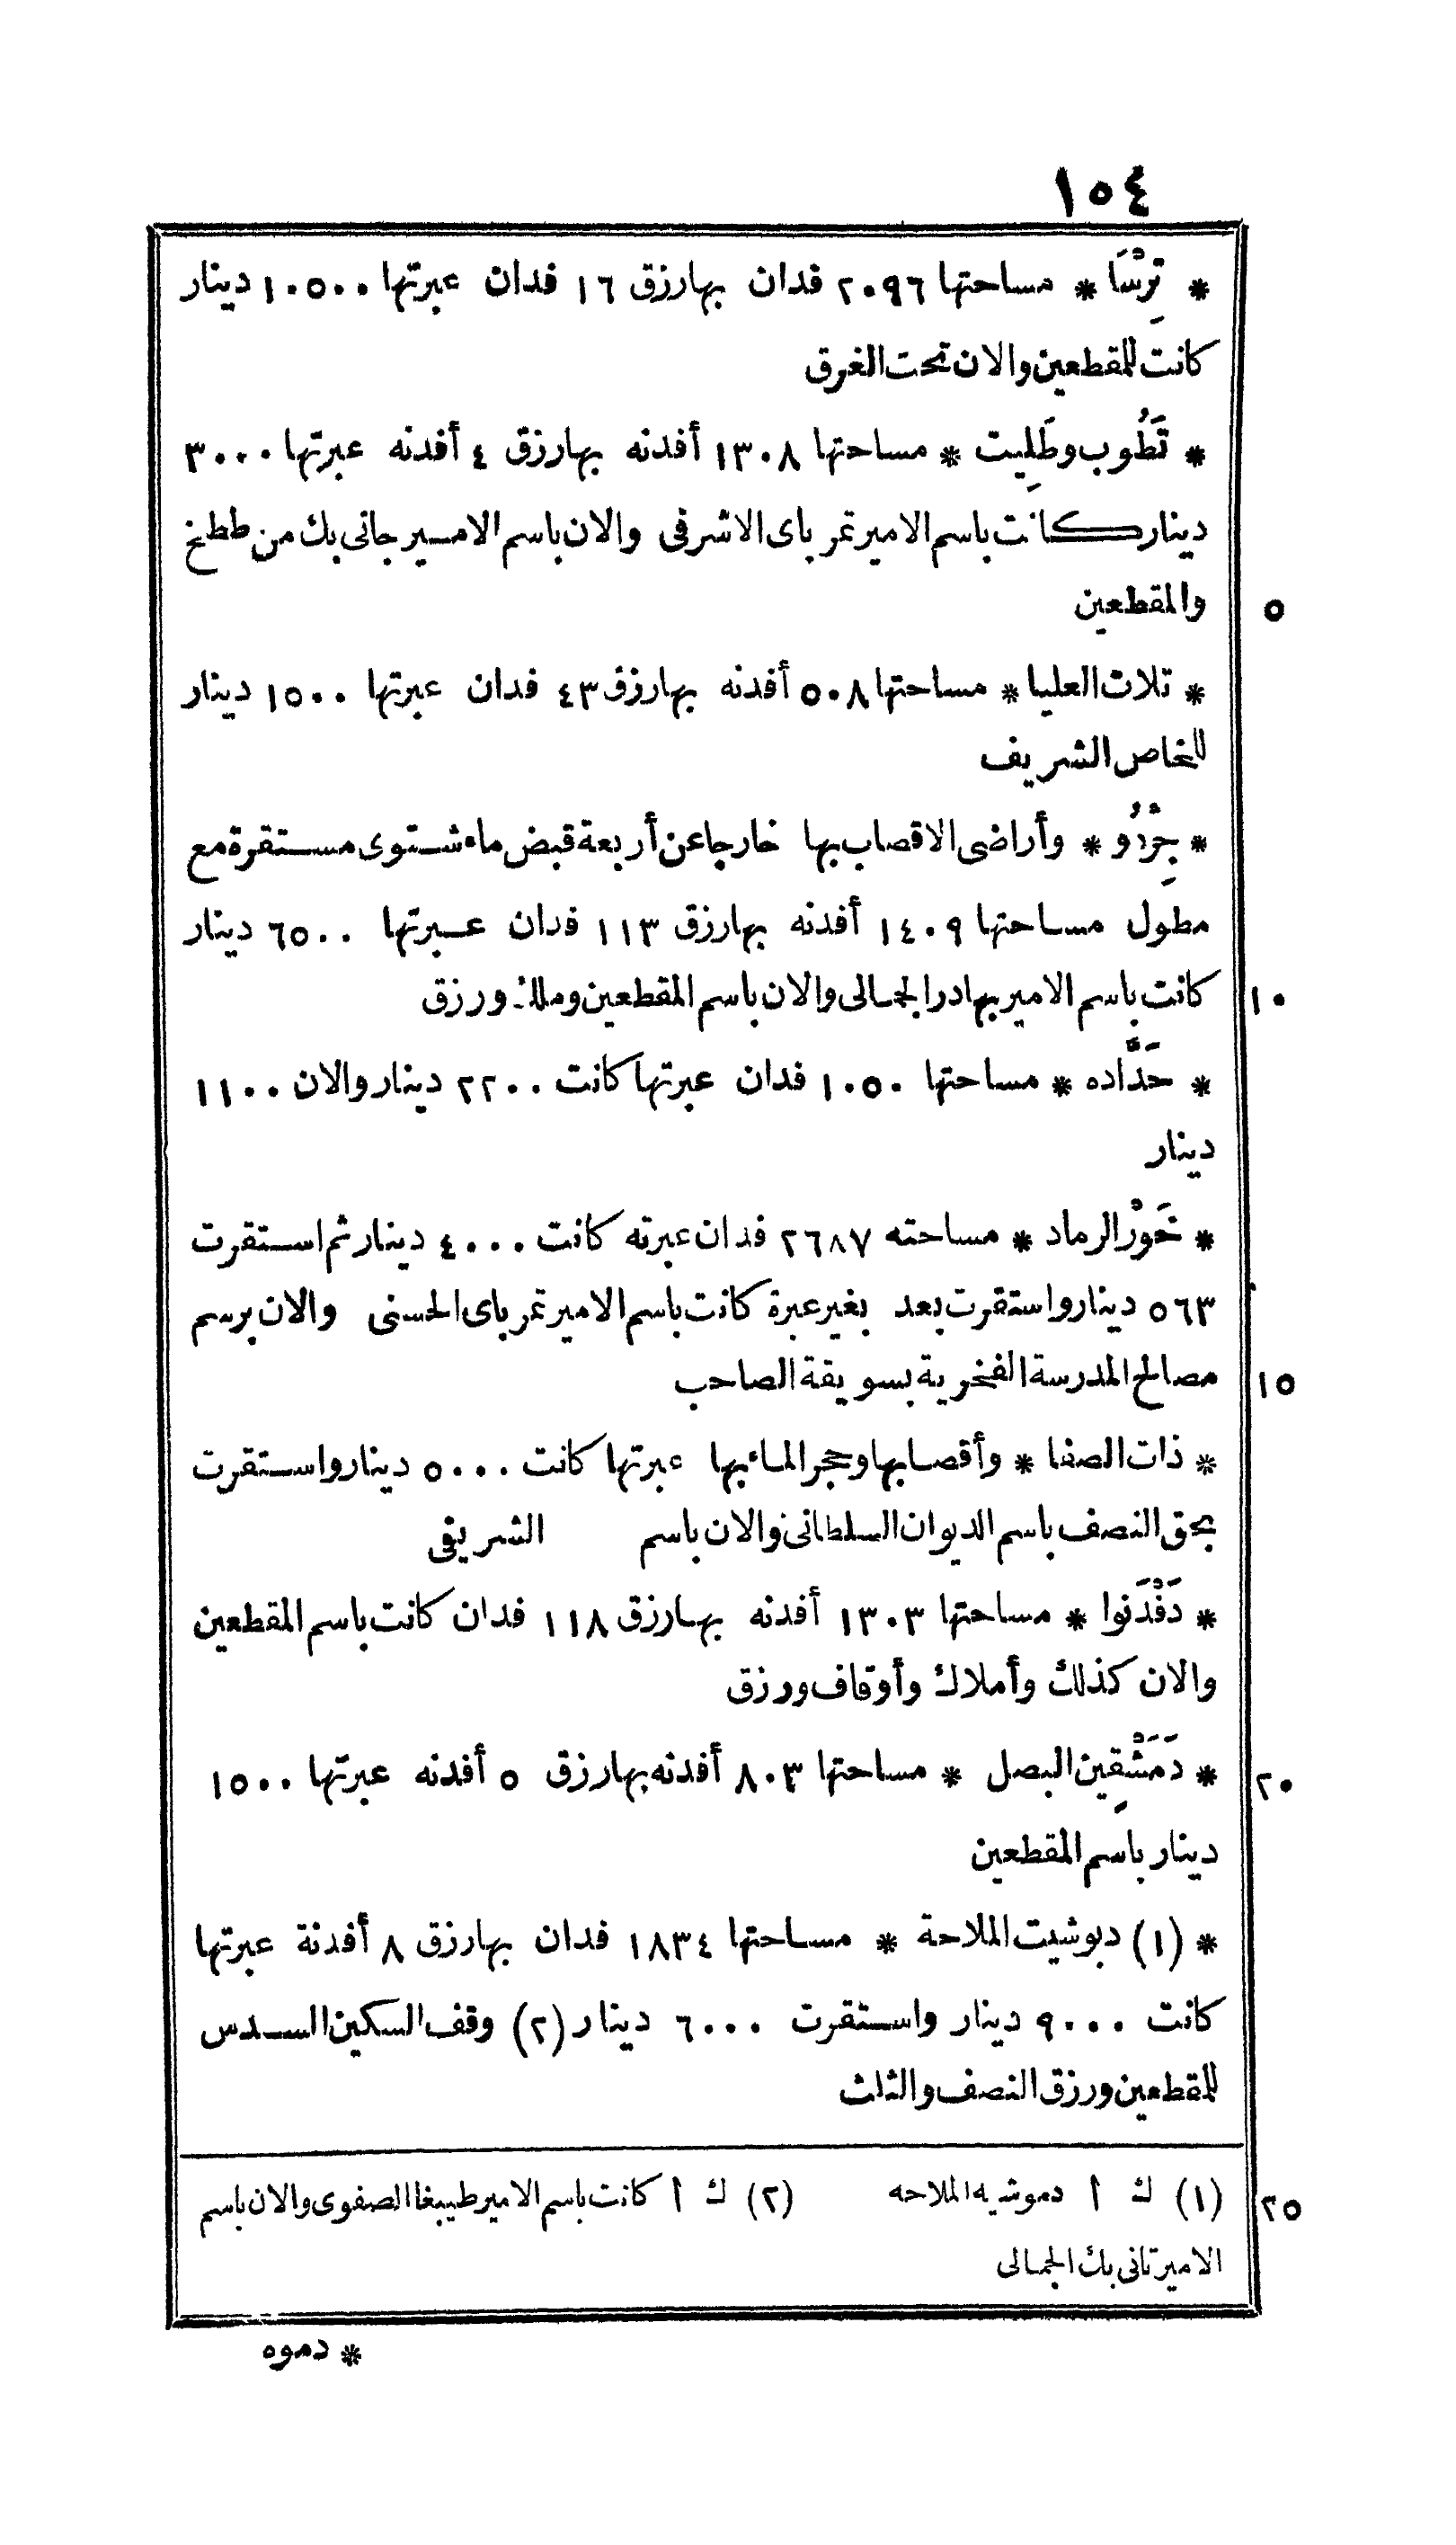 ١٥٤
* تِرْسَا * مساحتها ٢٠٩٦ فدان بها رزق ١٦ فدان عبرتها ١٠٥٠٠ دينار
كانت للمقطعين والان تحت الغرق
* تَطُوب وطَلِيت * مساحتها ١٣٠٨ أفدنه بها رزق ٤ أفدنه عبرتها ٣٠٠٠
دينار كانت باسم الامير تمر باى الاشرفى والان باسم الامير جانى بك من ططخ
٥ والمقطعين
* تلات العليا * مساحتها ٥٠٨ أفدنه بها رزق ٤٣ فدان عبرتها ١٥٠٠ دينار
للخاص الشريف
* جِرْدُو * وأراضى الاقصاب بها خارجا عن أربعة قبض ماء شتوى مستقرة مع
مطول مساحتها ١٤٠٩ أفدنه بها رزق ١١٣ فدان عبرتها ٦٥٠٠ دينار
١٠ كانت باسم الامير بهادر الجمالى والان باسم المقطعين وملك ورزق
* حَدَّاده * مساحتها ١٠٥٠ فدان عبرتها كانت ٢٢٠٠ دينار والان ١١٠٠
دينار
* خَوْر الرماد * مساحته ٢٦٨٧ فدان عبرته كانت ٤٠٠٠ دينار ثم استقرت
٥٦٣ دينار واستقرت بعد بغير عبرة كانت باسم الامير تمر باى الحسنى والان برسم
١٥ مصالح المدرسة الفخرية بسويقة الصاحب
* ذات الصفا * وأقصابها وحجر الماء بها عبرتها كانت ٥٠٠٠ دينار واستقرت
بحق النصف باسم الديوان السلطانى والان باسم الشريفى
* دَفْدَنوا * مساحتها ١٣٠٣ أفدنه بها رزق ١١٨ فدان كانت باسم المقطعين
والان كذلك وأملاك وأوقاف ورزق
٢٠ * دَمَشْقِين البصل * مساحتها ٨٠٣ أفدنه بها رزق ٥ أفدنه عبرتها ١٥٠٠
دينار باسم المقطعين
* (١) دبوشيت الملاحة * مساحتها ١٨٣٤ فدان بها رزق ٨ أفدنة عبرتها
كانت ٩٠٠٠ دينار واستقرت ٦٠٠٠ دينار (٢) وقف السكين السدس
للمقطعين ورزق النصف والثلث
٢٥ (١) ك أ دموشيه الملاحه (٢) ك أ كانت باسم الامير طيبغا الصفوى والان باسم
الامير تانى بك الجمالى
* دموه